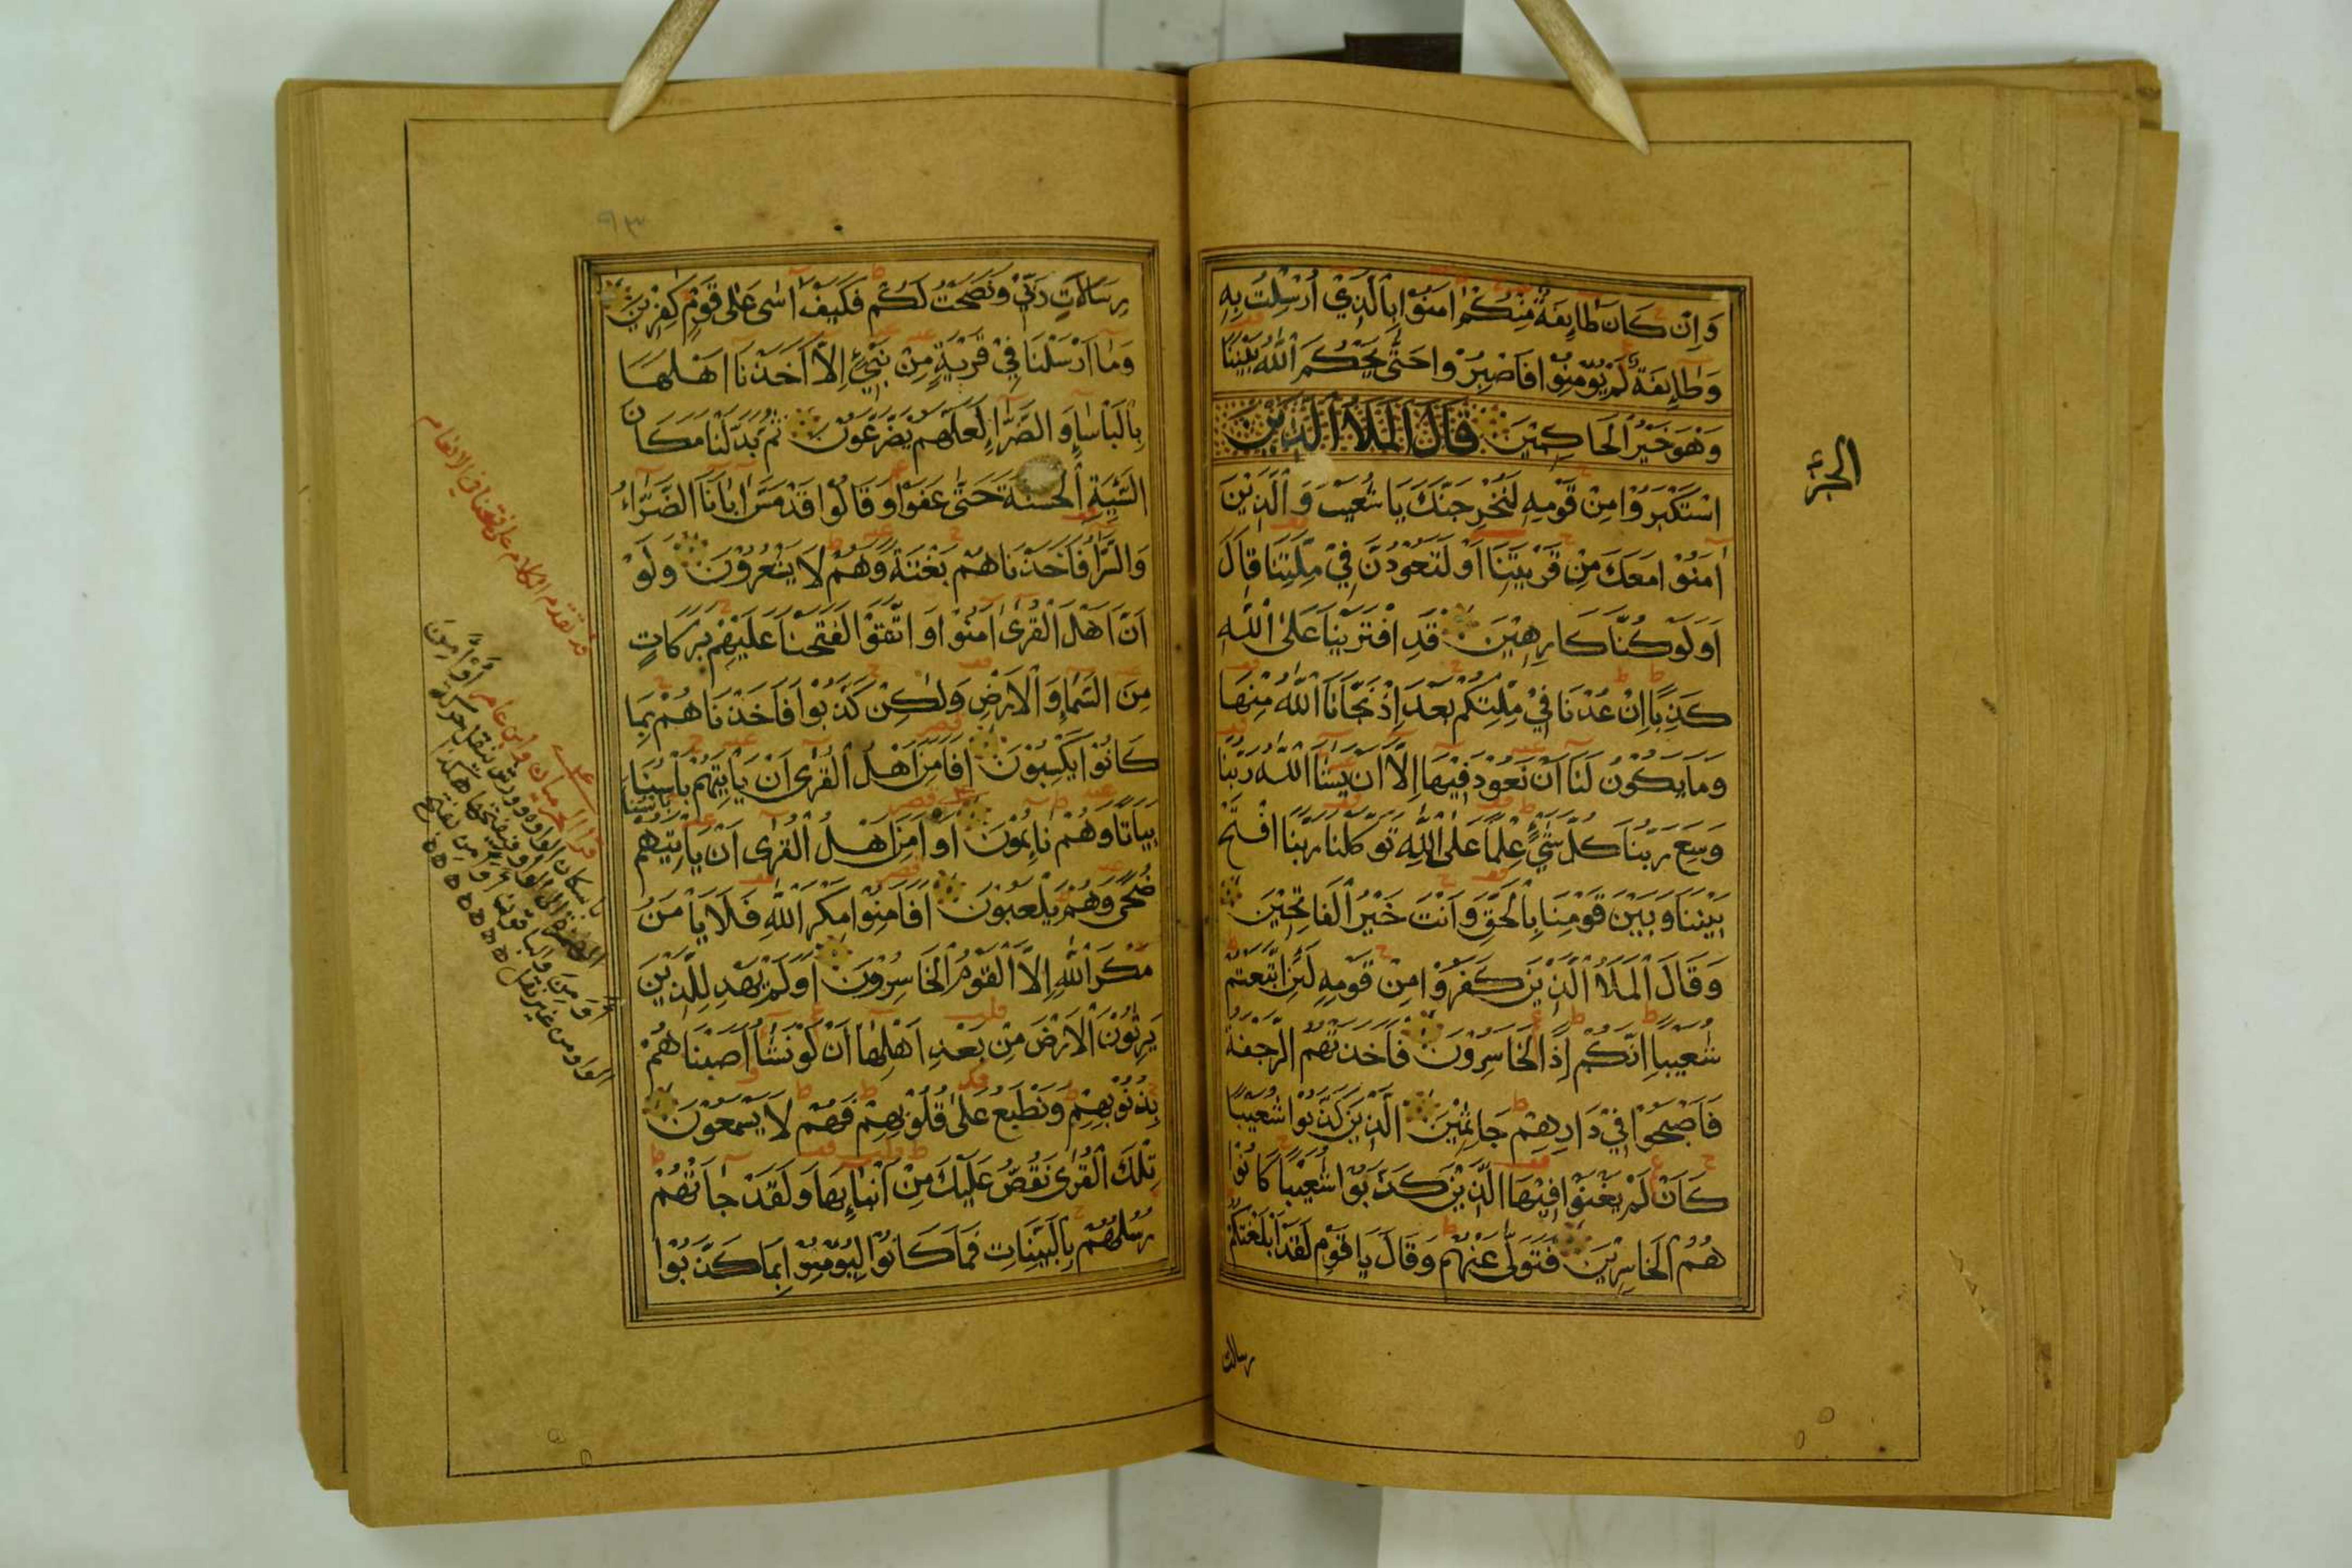 وَاِنْ كَانَ طَايِفَةٌ مِنْكُمْ اٰمَنُوْا بِالَّذِيْ اُرْسِلْتُ بِهٖ
وَطَايِفَةٌ لَمْ يُؤْمِنُوْا فَاصْبِرُوْا حَتّٰى يَحْكُمَ اللّٰهُ بَيْنَنَا
وَهُوَ خَيْرُ الْحَاكِمِيْنَ قَالَ الْمَلَأُ الَّذِيْنَ
الجزء
اسْتَكْبَرُوْا مِنْ قَوْمِهٖ لَنُخْرِجَنَّكَ يَا شُعَيْبُ وَالَّذِيْنَ
اٰمَنُوْا مَعَكَ مِنْ قَرْيَتِنَا اَوْ لَتَعُوْدُنَّ فِيْ مِلَّتِنَا قَالَ
اَوَلَوْ كُنَّا كَارِهِيْنَ قَدِ افْتَرَيْنَا عَلَى اللّٰهِ
كَذِبًا اِنْ عُدْنَا فِيْ مِلَّتِكُمْ بَعْدَ اِذْ نَجَّانَا اللّٰهُ مِنْهَا
وَمَا يَكُوْنُ لَنَا اَنْ نَعُوْدَ فِيْهَا اِلَّا اَنْ يَشَا اللّٰهُ رَبُّنَا
وَسِعَ رَبُّنَا كُلَّ شَيْءٍ عِلْمًا عَلَى اللّٰهِ تَوَكَّلْنَا رَبَّنَا افْتَحْ
بَيْنَنَا وَبَيْنَ قَوْمِنَا بِالْحَقِّ وَاَنْتَ خَيْرُ الْفَاتِحِيْنَ
وَقَالَ الْمَلَأُ الَّذِيْنَ كَفَرُوْا مِنْ قَوْمِهٖ لَئِنِ اتَّبَعْتُمْ
شُعَيْبًا اِنَّكُمْ اِذًا لَخَاسِرُوْنَ فَاَخَذَتْهُمُ الرَّجْفَةُ
فَاَصْبَحُوْا فِيْ دَارِهِمْ جَاثِمِيْنَ الَّذِيْنَ كَذَّبُوْا شُعَيْبًا
كَاَنْ لَمْ يَغْنَوْا فِيْهَا الَّذِيْنَ كَذَّبُوْا شُعَيْبًا كَانُوْا
هُمُ الْخَاسِرِيْنَ فَتَوَلّٰى عَنْهُمْ وَقَالَ يَا قَوْمِ لَقَدْ اَبْلَغْتُكُمْ
رسالات
رِسَالَاتِ رَبِّيْ وَنَصَحْتُ لَكُمْ فَكَيْفَ اٰسٰى عَلٰى قَوْمٍ كٰفِرِيْنَ
وَمَا اَرْسَلْنَا فِيْ قَرْيَةٍ مِنْ نَبِيٍّ اِلَّا اَخَذْنَا اَهْلَهَا
بِالْبَاْسَاءِ وَالضَّرَّاءِ لَعَلَّهُمْ يَضَّرَّعُوْنَ ثُمَّ بَدَّلْنَا مَكَانَ
السَّيِّئَةِ الْحَسَنَةَ حَتّٰى عَفَوْا وَقَالُوْا قَدْ مَسَّ اٰبَانَا الضَّرَّاءُ
وَالسَّرَّاءُ فَاَخَذْنَاهُمْ بَغْتَةً وَهُمْ لَا يَشْعُرُوْنَ وَلَوْ
اَنَّ اَهْلَ الْقُرٰى اٰمَنُوْا وَاتَّقَوْا لَفَتَحْنَا عَلَيْهِمْ بَرَكَاتٍ
مِنَ السَّمَاءِ وَالْاَرْضِ وَلٰكِنْ كَذَّبُوْا فَاَخَذْنَاهُمْ بِمَا
كَانُوْا يَكْسِبُوْنَ اَفَاَمِنَ اَهْلُ الْقُرٰى اَنْ يَاْتِيَهُمْ بَاْسُنَا
بَيَاتًا وَهُمْ نَايِمُوْنَ اَوَاَمِنَ اَهْلُ الْقُرٰى اَنْ يَاْتِيَهُمْ
بَاْسُنَا
ضُحًى وَهُمْ يَلْعَبُوْنَ اَفَاَمِنُوْا مَكْرَ اللّٰهِ فَلَا يَاْمَنُ
مَكْرَ اللّٰهِ اِلَّا الْقَوْمُ الْخَاسِرُوْنَ اَوَلَمْ يَهْدِ لِلَّذِيْنَ
يَرِثُوْنَ الْاَرْضَ مِنْ بَعْدِ اَهْلِهَا اَنْ لَوْ نَشَاءُ اَصَبْنَاهُمْ
بِذُنُوْبِهِمْ وَنَطْبَعُ عَلٰى قُلُوْبِهِمْ فَهُمْ لَا يَسْمَعُوْنَ
تِلْكَ الْقُرٰى نَقُصُّ عَلَيْكَ مِنْ اَنْبَاءِهَا وَلَقَدْ جَاءَتْهُمْ
رُسُلُهُمْ بِالْبَيِّنَاتِ فَمَا كَانُوْا لِيُؤْمِنُوْا بِمَا كَذَّبُوْا
قد تقدم الكلام على فتحنا في الانعام
قرا الحرميان وابن عامر اَوْ اَمِنَ
باسكان الواو وورش ينقل حركة
الهمزة الى الواو فيفتحها هكذا